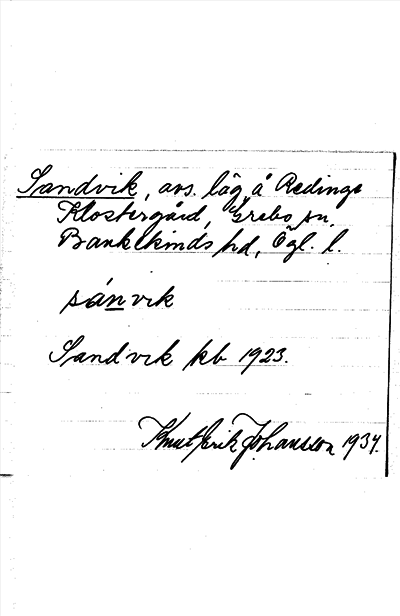 Sandvik, avs. läg å Redinge
Klostergård, Grebo sn,
Bankekinds hd, Ögl. l.
sánvik
Sandvik kb 1923.
Knut Erik Johansson 1934.